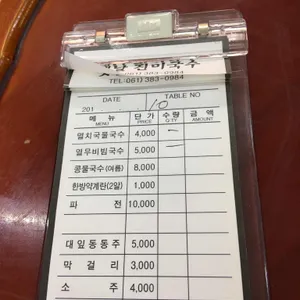 진미국수
☎(061) 383-0984
TEL:(061) 383-0984
DATE TABLE NO
201 . . 10
메 뉴 MENU 단 가 PRICE 수량 Q'TY 금 액 AMOUNT
멸치국물국수 4,000 一
열무비빔국수 5,000 二
콩물국수(여름) 8,000
한방약계란(2알) 1,000
파 전 10,000
대잎동동주 5,000
막 걸 리 3,000
소 주 4,000